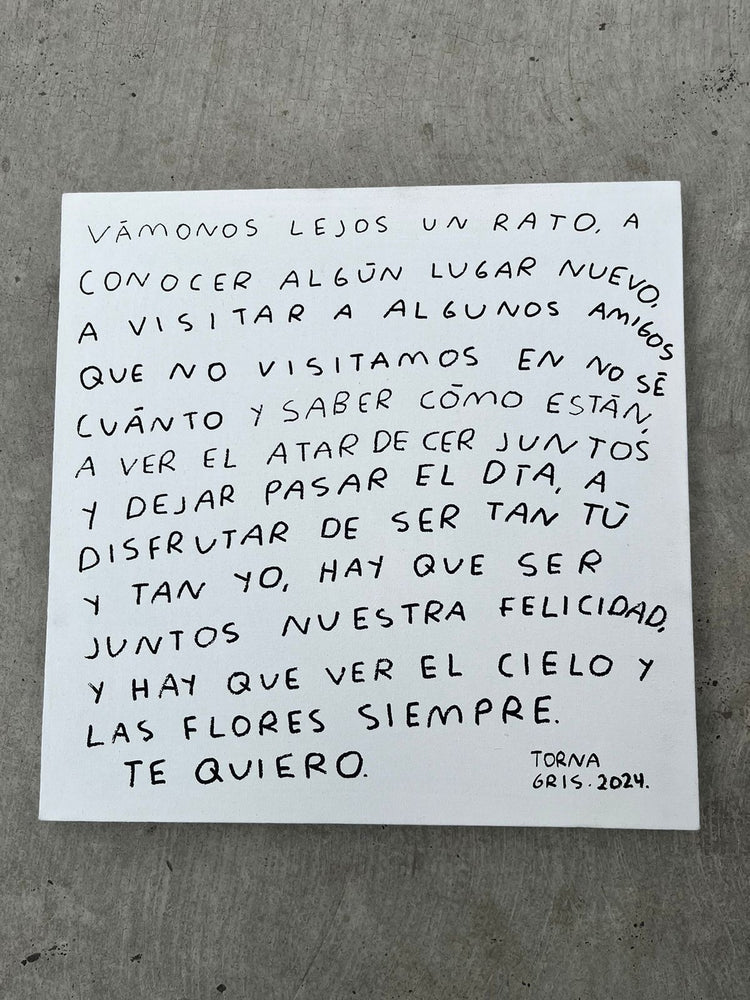 VÁMONOS LEJOS UN RATO, A
CONOCER ALGÚN LUGAR NUEVO,
A VISITAR A ALGUNOS AMIGOS
QUE NO VISITAMOS EN NO SÉ
CUÁNTO Y SABER CÓMO ESTÁN,
A VER EL ATARDECER JUNTOS
Y DEJAR PASAR EL DÍA, A
DISFRUTAR DE SER TAN TÚ
Y TAN YO, HAY QUE SER
JUNTOS NUESTRA FELICIDAD,
Y HAY QUE VER EL CIELO Y
LAS FLORES SIEMPRE.
TE QUIERO.
TORNA
GRIS. 2024.